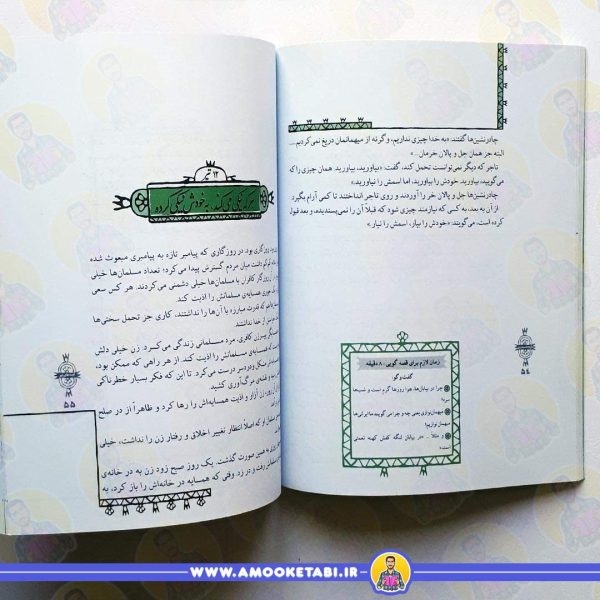 چادرنشین‌ها گفتند: «به خدا چیزی نداریم، وگرنه از میهمانمان دریغ نمی‌کردیم....
البته جز همان جل و پالان خرمان...»
تاجر که دیگر نمی‌توانست تحمل کند، گفت: «بیاورید، بیاورید. همان چیزی را که
می‌گویید، بیاورید. خودش را بیاورید، اما اسمش را نیاورید»
چادرنشین‌ها جل و پالان خر را آوردند و روی تاجر انداختند تا کمی آرام بگیرد.
از آن به بعد، به کسی که نیازمند چیزی شود که قبلاً آن را نمی‌پسندیده، و بعد قبول
کرده است، می‌گویند: «خودش را بیار، اسمش را نیار».
زمان لازم برای قصه گویی: ۸ دقیقه
گفت‌وگو:
چرا در بیابان‌ها، هوا روزها گرم است و شب‌ها
سرد؟
میهمان‌نوازی یعنی چه و چرا می‌گویند ما ایرانی‌ها
میهمان نوازیم؟
در بیابان لنگه کفش کهنه نعمتی
است
۵۴
۱۲ تیر
هر که نیکی می‌کند، به خودش نیکی کرده
روزگاری بود. در روزگاری که پیامبر تازه به پیامبری مبعوث شده
داشت میان مردم گسترش پیدا می‌کرد؛ تعداد مسلمان‌ها خیلی
کافران با مسلمان‌ها خیلی دشمنی می‌کردند. هر کس سعی
همسایه‌ی مسلمانش را اذیت کند.
که قدرت مبارزه با آن‌ها را نداشتند، کاری جز تحمل سختی‌ها
از خدا نداشتند
پیرزن کافری، مرد مسلمانی زندگی می‌کرد. زن خیلی دلش
مسلمانش را اذیت کند. از هر راهی که ممکن بود،
دردسر درست می‌کرد. تا این که فکر بسیار خطرناکی
مرگ‌آوری کشید
زن آزار و اذیت همسایه‌اش را رها کرد و ظاهراً از در صلح
او که اصلاً انتظار تغییر اخلاق و رفتار زن را نداشت، خیلی
همین صورت گذشت. یک روز صبح زود زن به در خانه‌ی
رفت و در زد. وقتی که همسایه در خانه‌اش را باز کرد، به
۵۵
WWW.AMOOKETABI.IR